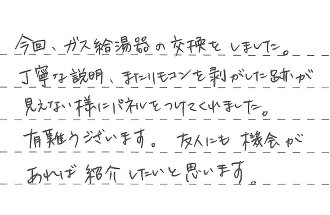 今回、ガス給湯器の交換をしました。
丁寧な説明、またリモコンを剥がした跡が
見えない様にパネルをつけてくれました。
有難うございます。友人にも機会が
あれば紹介したいと思います。